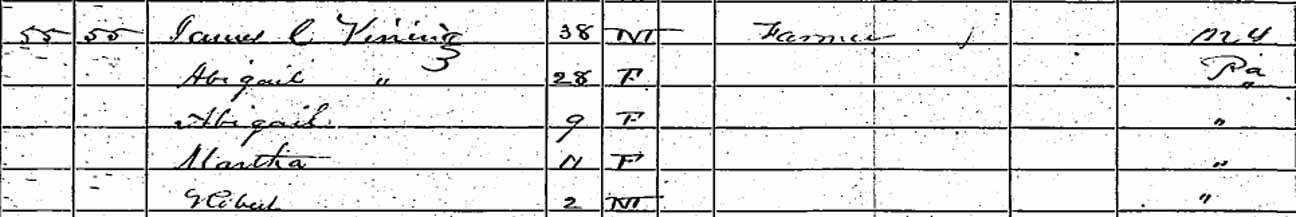 55 55 James C Vining 38 M Farmer N.Y
Abigail " 28 F Pa
Abigail 9 F "
Martha F "
2 M "